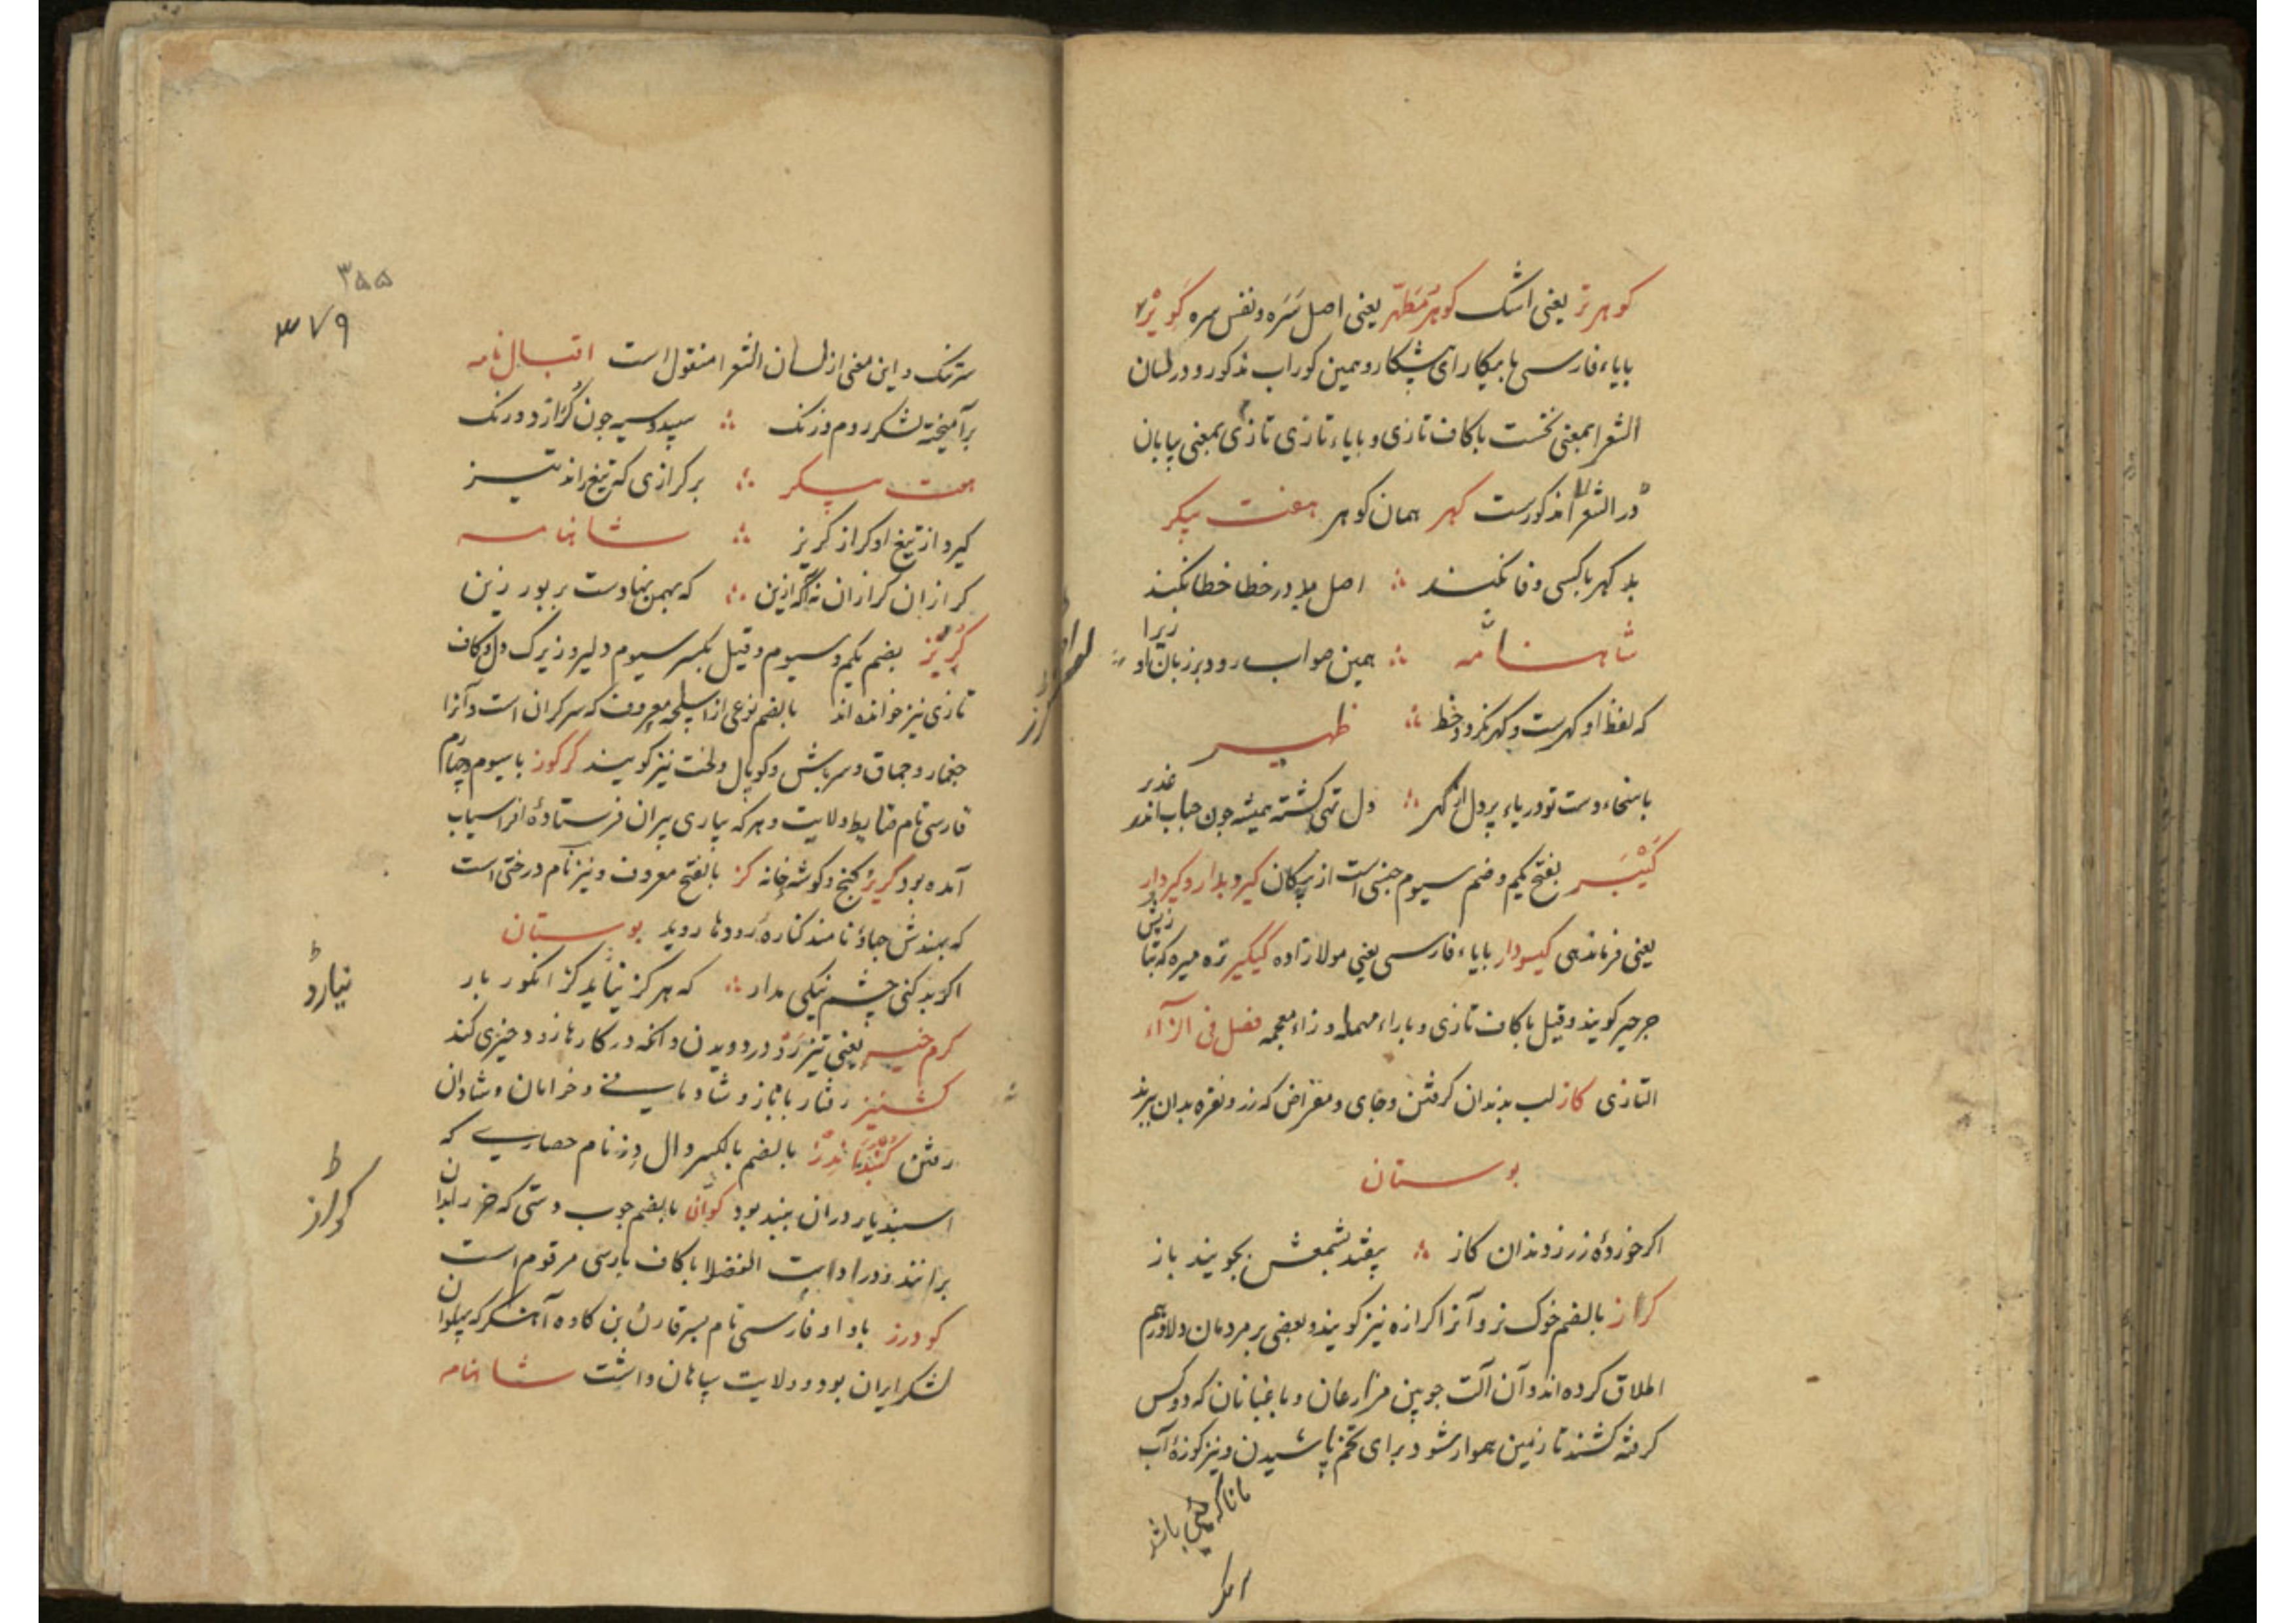 کوهر تر یعنی اشک کوهر مطهر یعنی اصل سره و نفس سره
بایاء فارسی با بیکار ای پیشکار و همین کوراب مذکور و در لسان
الشعرا بمعنی نخست با کاف تازی و بایاء تازی تازی بمعنی بیابان
در الشعرا مذکورست کهر همان کوهر هفت پیکر
بد کهر با کسی وفا نکند ∴ اصل بد در خطا خطا نکند
شاهنامه ∴ همین صواب رود بر زبان او زیرا
که لفظ او کهرست و کهر نکرد خط ∴ ظهیر
باسخاء دست تو دریاء پر دل از کهر ∴ دل تهی کشته همیشه چون حباب اندر غدیر
بفتح یکم و ضم سیوم جنسی است از پیکان کیر و بدار و کیردار
یعنی فرماندهی کیسودار بایاء فارسی یعنی مولازاده کیکیر تره میره که بتازیش
جرجیر کویند و قیل با کاف تازی و باراء مهمله و زاء معجمه فصل فی الزاء
التازی کاز لب بدندان کرفتن و جای و مقراض که زر و نقره بدان برند
بوستان
اکر خورده زر ز دندان کاز ∴ بیفتد بشمعش بجویند باز
کراز بالضم خوک نر و آنرا کرازه نیز کویند و بعضی بر مردمان دلاور هم
اطلاق کرده اند و آن آلت چوبین مزارعان و باغبانان که دو کس
کرفته کشند تا زمین هموار شود برای تخم پاشیدن و نیز کوزه آب
۳۵۵
۳۷۹
سرتنک و این معنی از لسان الشعرا منقول است اقبال نامه
برآمیخته لشکر روم و زنک ∴ سپید و سیه چون کراز دو رنک
هفت پیکر ∴ بر کرازی که تیغ راند تیز
کیرد از تیغ او کراز کریز ∴ شاهنامه
کرازان کرازان نه آکه ازین ∴ که بهمن نهادست بر بور زین
کربز بضم یکم و سیوم و قیل بکسر سیوم دلیر و زیرک دل و کاف
تازی نیز خوانده اند بالضم نوعی از اسلحه معروف که سرکران است و آنرا
و چماق و سرپاش و کوپال و لخت نیز کویند کرکوز با سیوم و چهارم
فارسی نام ضابط ولایت و هر که بیاری پیران فرستاده افراسیاب
آمده بود کریز کنج و کوشه خانه کز بالفتح معروف و نیز نام درختی است
که بهندش جهاؤ نامند کناره رودها روید بوستان
اکر بد کنی چشم نیکی مدار ∴ که هرکز نیاید کز انکور بار
نیارد
کرم خیز یعنی تیز رو در دویدن و آنکه در کارها زود خیزی کند
رفتار با ناز و شادمانی و خرامان و شادان
رفتن بالضم بالکسر دال دز نام حصاری که
اسفندیار در آن ببند بود کوان بالضم چوب دستی که خر را بدان
کواز
برانند و در ادات الفضلا با کاف پارسی مرقوم است
کودرز باواو فارسی نام پسر قارن بن کاوه آهنکر که پهلوان
لشکر ایران بود و ولایت سپاهان داشت شاهنامه